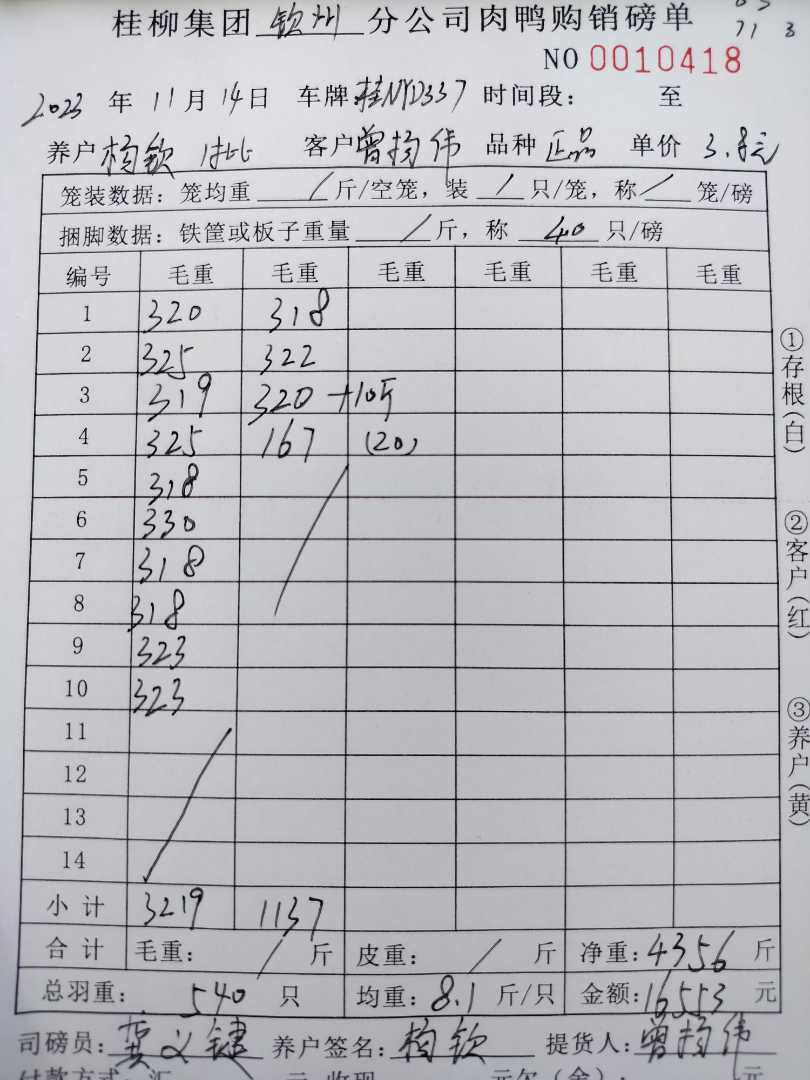 桂柳集团 钦州 分公司肉鸭购销磅单
71 3
NO 0010418
2023 年 11月 14日 车牌:桂NYD337 时间段: 至
养户 杨钦 客户 曾 伟 品种 正品 单价 3.8元
笼装数据:笼均重 / 斤/空笼,装 / 只/笼,称 / 笼/磅
捆脚数据:铁筐或板子重量 / 斤,称 40 只/磅
编号 毛重 毛重 毛重 毛重 毛重 毛重
1 320 318
2 325 322
3 319 320 +10斤
4 325 167 (20)
5 318
6 330
7 318
8 318
9 323
10 323
11
12
13
14
小计 3219 1137
合计 毛重: / 斤 皮重: / 斤 净重:4356 斤
总羽重: 540 只 均重:8.1 斤/只 金额:16553 元
司磅员: 养户签名: 杨钦 提货人: 曾 伟
付款方式:汇 元 收现 元欠(金): 元
①存根(白)
②客户(红)
③养户(黄)